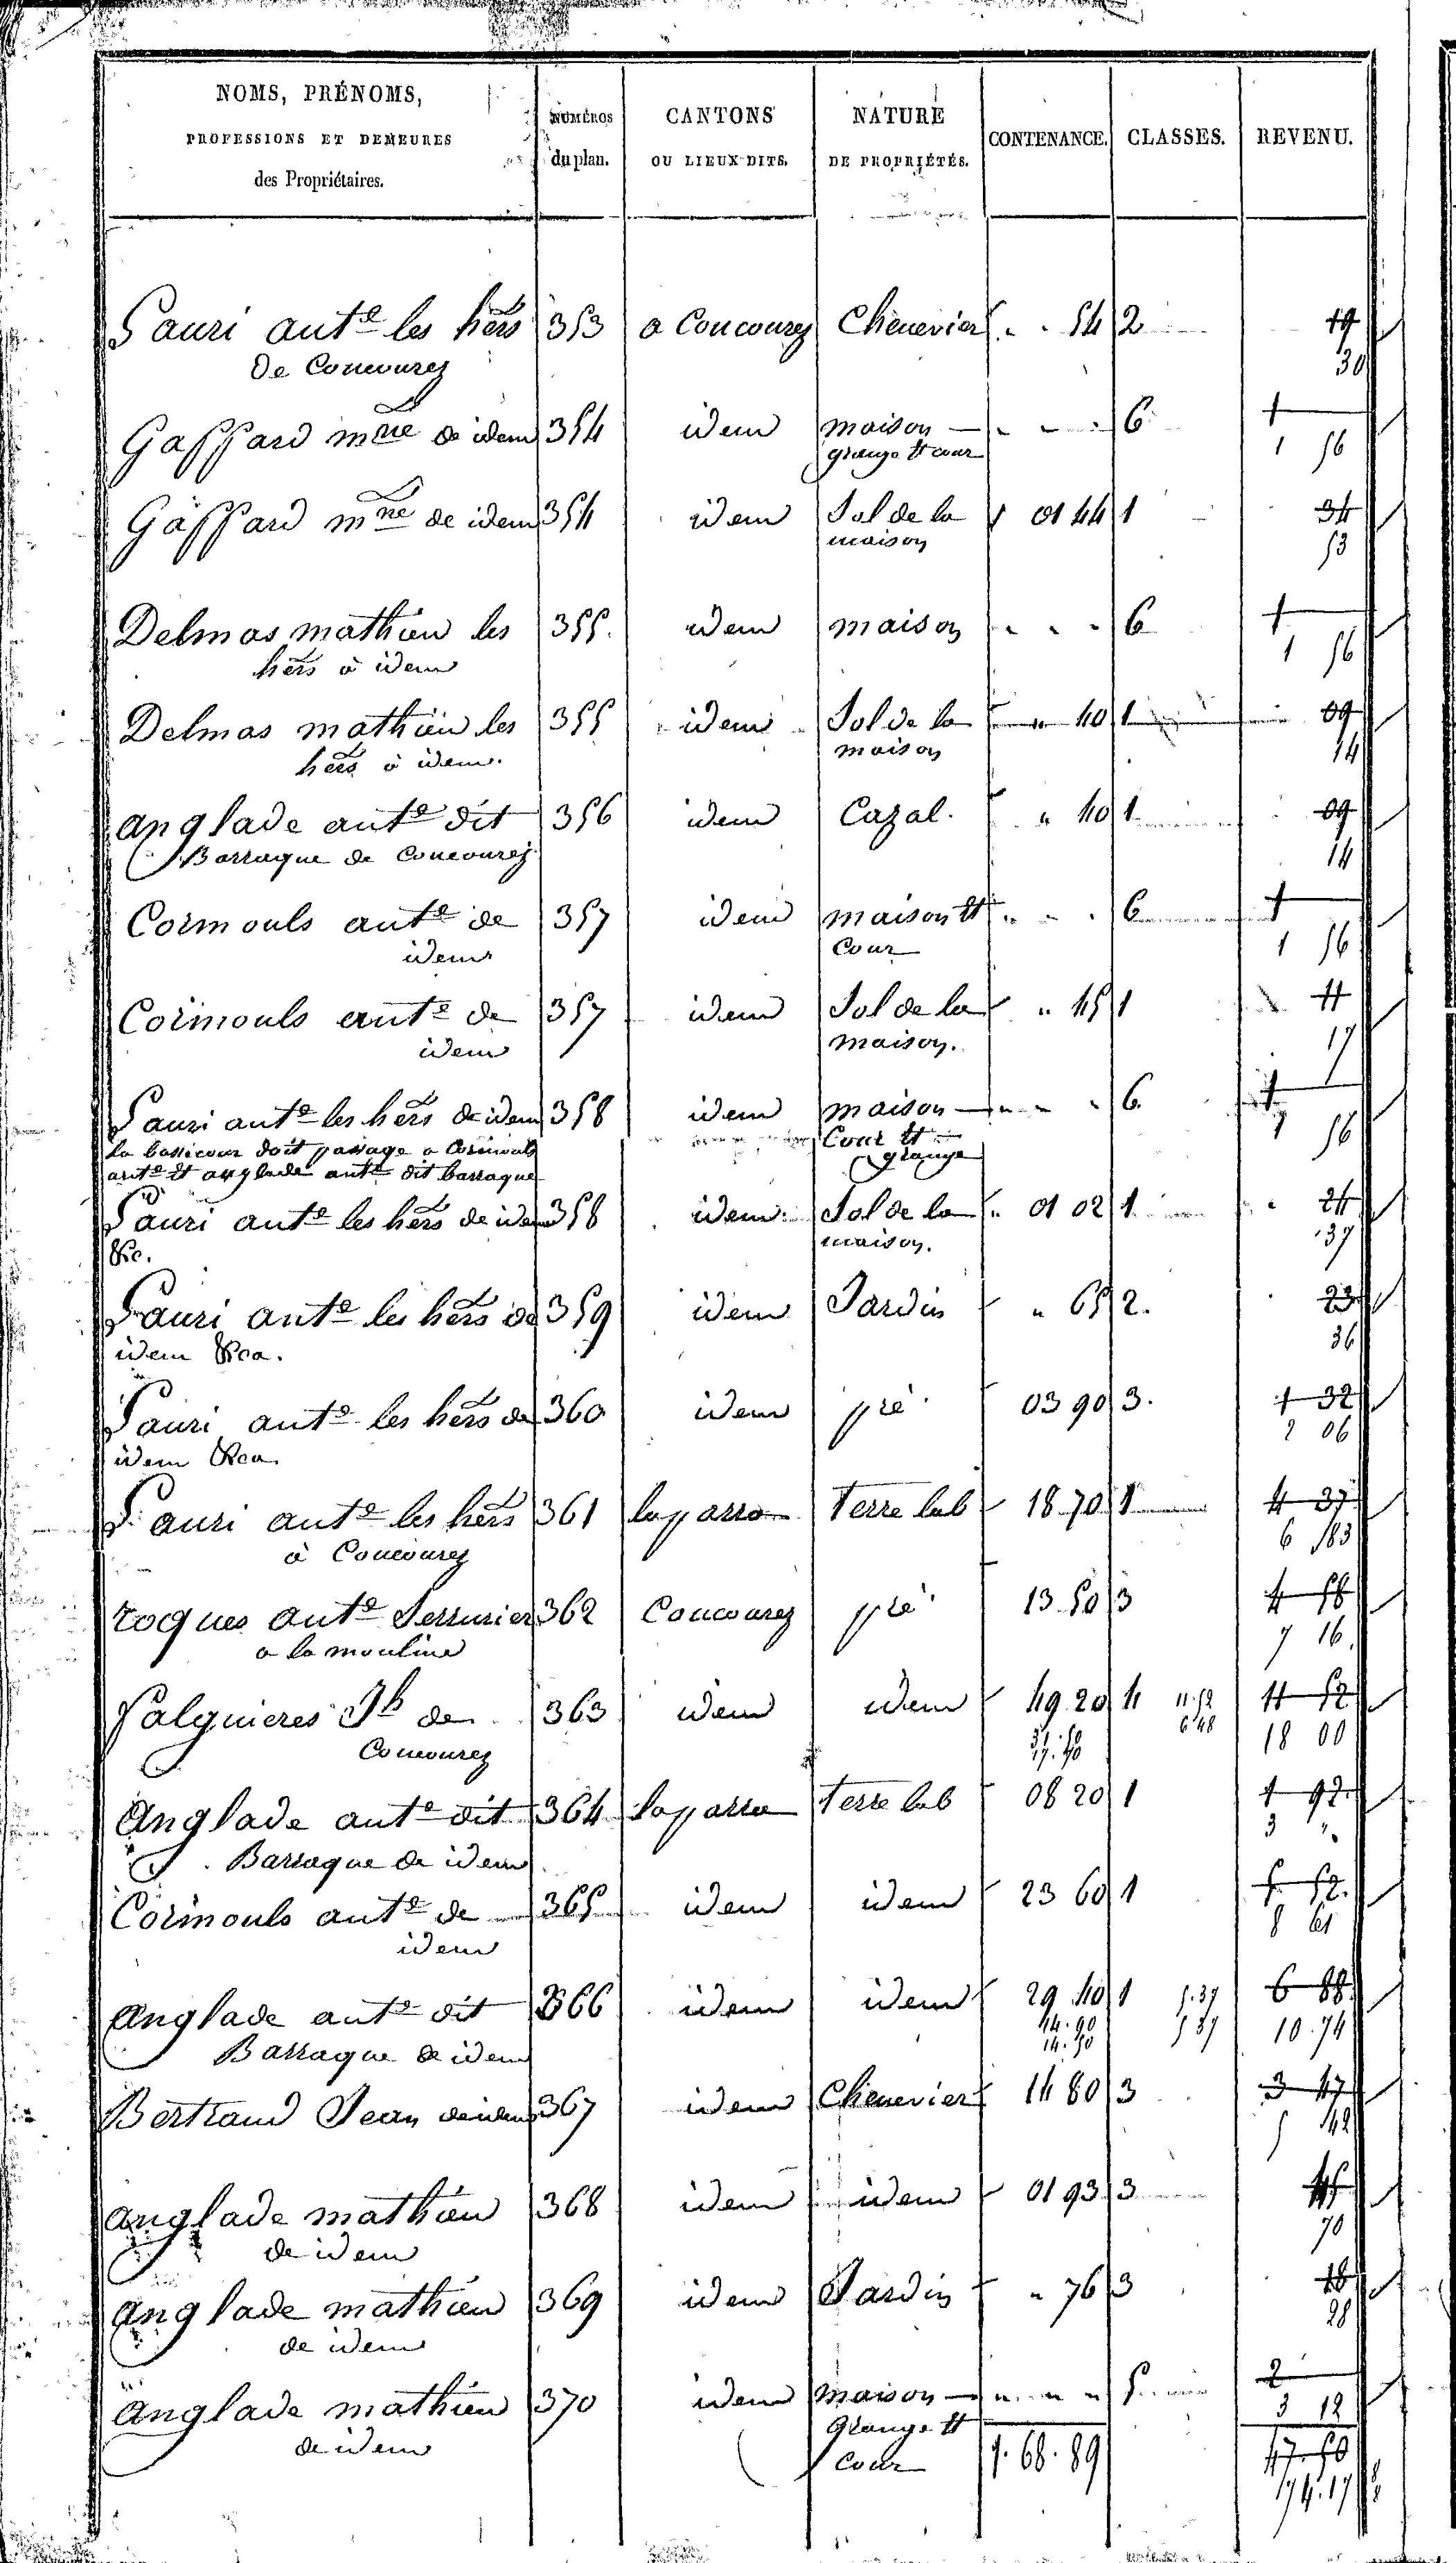 NOMS, PRÉNOMS, PROFESSIONS ET DEMEURES des Propriétaires. | NUMÉROS du plan. | CANTONS OU LIEUX DITS. | NATURE DE PROPRIÉTÉS. | CONTENANCE. | CLASSES. | REVENU.
Pauri antᵉ les hers 353 a Concourez Chenevier 54 2 19
de Concourez 30
Gaffard mne de idem 354 idem maison 6 1
grange et cour 1 56
Gaffard mne de idem 354 idem Sol de la 01 44 1 34
maison 53
Delmas mathieu les 355. idem maison 6 1
hers à idem 1 56
Delmas mathieu les 355 idem Sol de la 40 1 09
hers à idem. maison 14
anglade antᵉ dit 356 idem Cazal. 40 1 09
Barraque de Concourez 14
Cormouls antᵉ de 357 idem maison et 6 1
idem Cour 1 56
Cormouls antᵉ de 357 idem Sol de la 45 1 11
idem maison. 17
Pauri antᵉ les hers de idem 358 idem maison 6 1
la bassecour doit passage a Cormouls Cour et 1 56
antᵉ et anglade antᵉ dit barraque grange
Pauri antᵉ les hers de idem 358 idem Sol de la 01 02 1 24
&c. maison. 37
Pauri antᵉ les hers de 359 idem Jardin 65 2. 23
idem &ca. 36
Pauri antᵉ les hers de 360 idem pré 03 90 3. 1 32
idem &ca. 2 06
Pauri antᵉ les hers 361 laparro Terre lab 18 70 1 4 37
à Concourez 6 83
roques antᵉ Serrurier 362 Concourez pré 13 50 3 4 58
a la mouline 7 16
Salguieres Jh de 363 idem idem 49 20 4 11.52 11 52
Concourez 6 48 18 00
Anglade antᵉ dit 364 laparro Terre lab 08 20 1 1 92
Barraque de idem 3 "
Cormouls antᵉ de 365 idem idem 23 60 1 5 52
idem 8 61
anglade antᵉ dit 366 idem idem 29 40 1 5.37 6 88
Barraque de idem 14.90 5 37 10.74
14.50
Bertrand Jean de idem 367 idem Chenevier 14 80 3 3 47
5 42
anglade mathieu 368 idem idem 01 93 3 45
de idem 70
anglade mathieu 369 idem Jardin 76 3 18
de idem 28
anglade mathieu 370 idem maison 5 2
de idem grange et 3 12
Cour 1.68.89 47.50
74.17